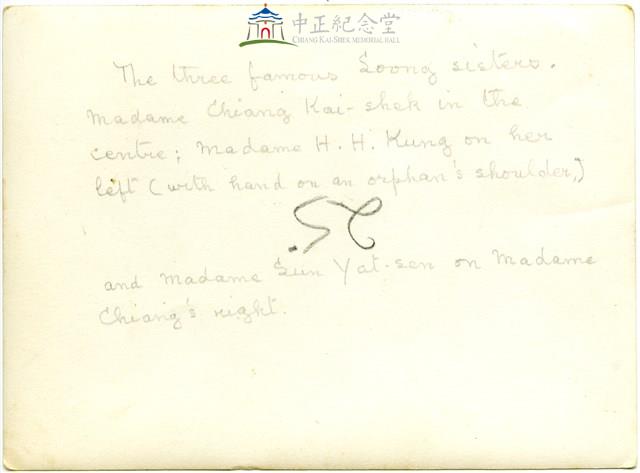 中正紀念堂
CHIANG KAI-SHEK MEMORIAL HALL
The three famous Soong sisters.
Madame Chiang Kai-shek in the
centre; Madame H. H. Kung on her
left (with hand on an orphan's shoulder,)
and Madame Sun Yat-sen on Madame
Chiang's right.